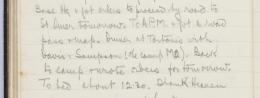 Base He & got orders to proceed by road to
St Omer tomorrow. To APM & got a road
pass & maps. Dined at Tortonis with
& Sampson (the camp MO). Back
to camp & wrote orders for tomorrow.
To bed about 12.30. Thank Heaven